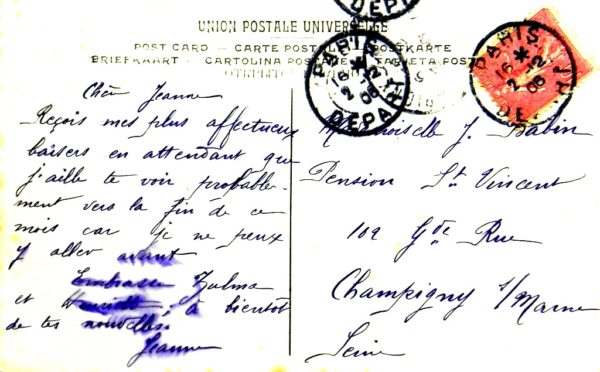 UNION POSTALE UNIVERSELLE
POST CARD — CARTE POSTALE — POSTKARTE
BRIEFKAART — CARTOLINA POSTALE — TARJETA POSTAL
PARIS
16 * 2 12 06
DÉPART
DÉPART
PARIS
16 * 2 12 06
DÉPART
Chère Jeanne
Reçois mes plus affectueux
baisers en attendant que
j'aille te voir probable-
ment vers la fin de ce
mois car je ne peux
y aller avant
Embrasse Zulma
et Henriette, à bientôt
de tes nouvelles.
Jeanne
Mademoiselle J. Babin
Pension St Vincent
102 Gde Rue
Champigny s/Marne
Seine